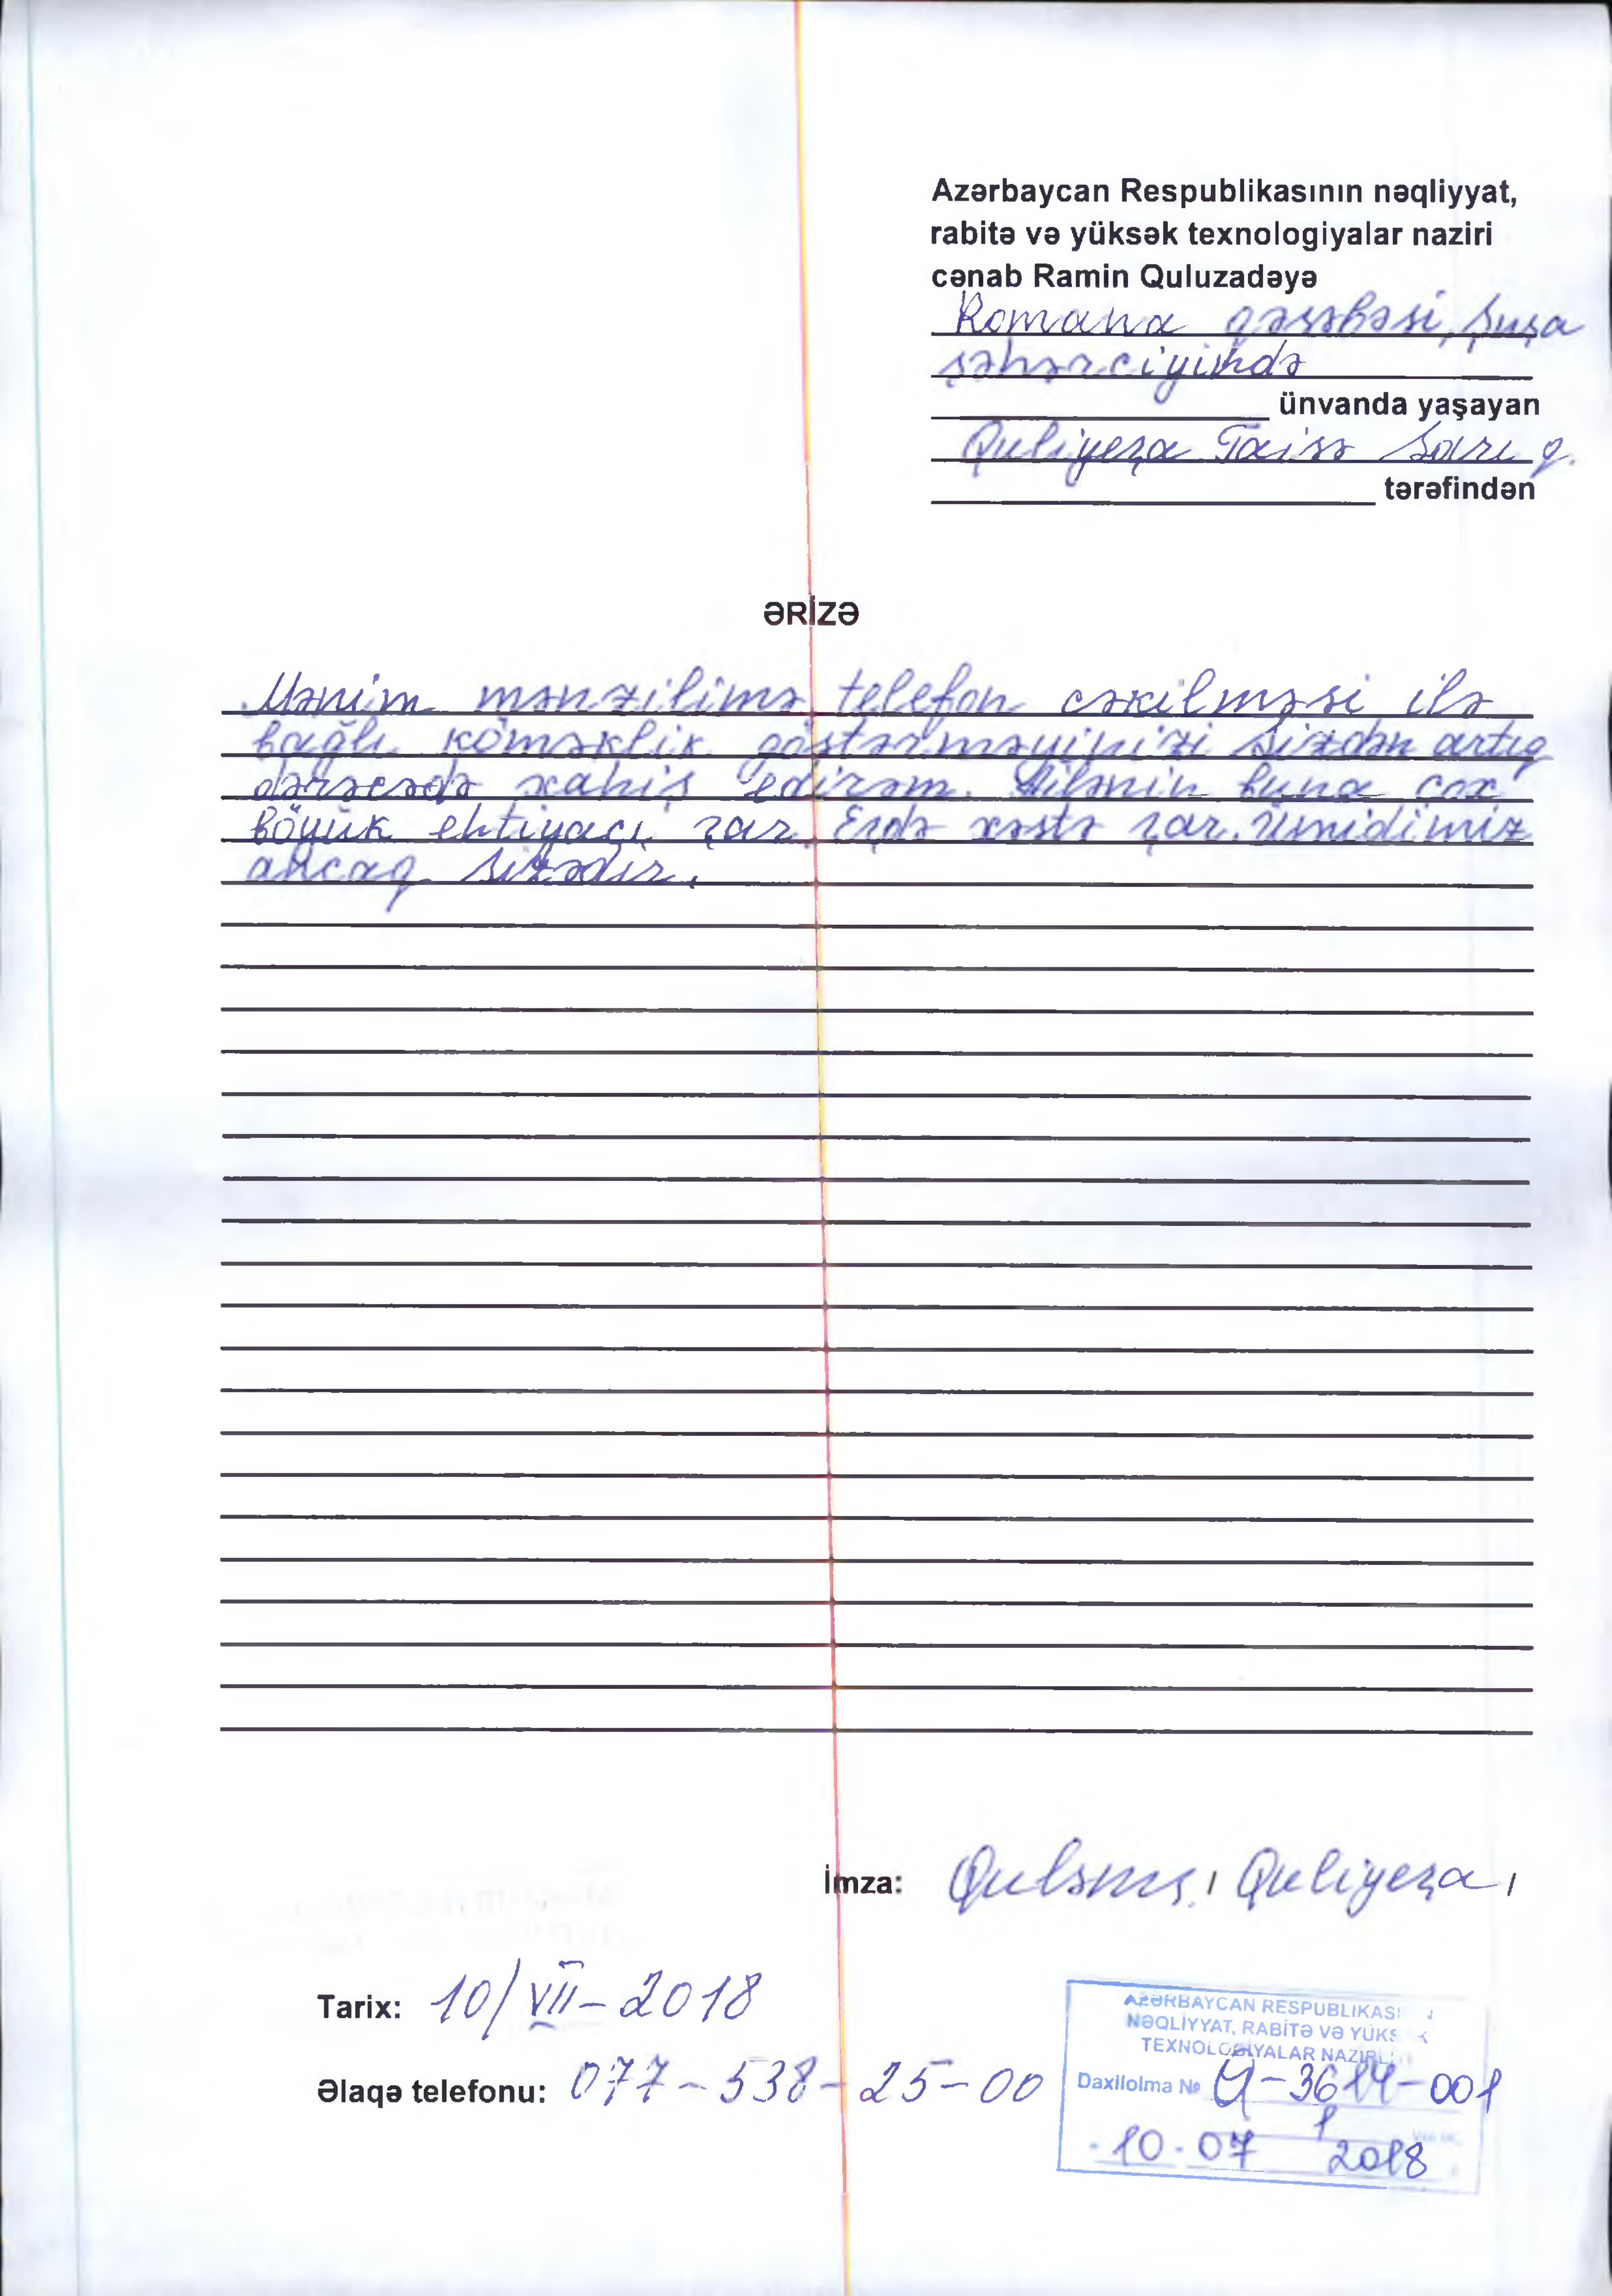 Azərbaycan Respublikasının nəqliyyat,
rabitə və yüksək texnologiyalar naziri
cənab Ramin Quluzadəyə
Romana qəsəbəsi, Şuşa
şəhərciyində
ünvanda yaşayan
Quliyeva Taisə Sarı q.
tərəfindən
ƏRİZƏ
Mənim mənzilimə telefon cəkilməsi ilə
bağlı köməklik göstərməyinizi sizdən artıq
dərəcədə xahiş edirəm. Ailənin buna cox
böyük ehtiyacı var. Evdə xəstə var. Ümidimiz
ancaq sizədir.
İmza: Quliyeva
Tarix: 10/VII-2018
Əlaqə telefonu: 077-538-25-00
AZƏRBAYCAN RESPUBLİKASI
NƏQLİYYAT, RABİTƏ VƏ YÜKS K
TEXNOLOGİYALAR NAZİRLİ
Daxilolma № -3614-001
10.07 2018